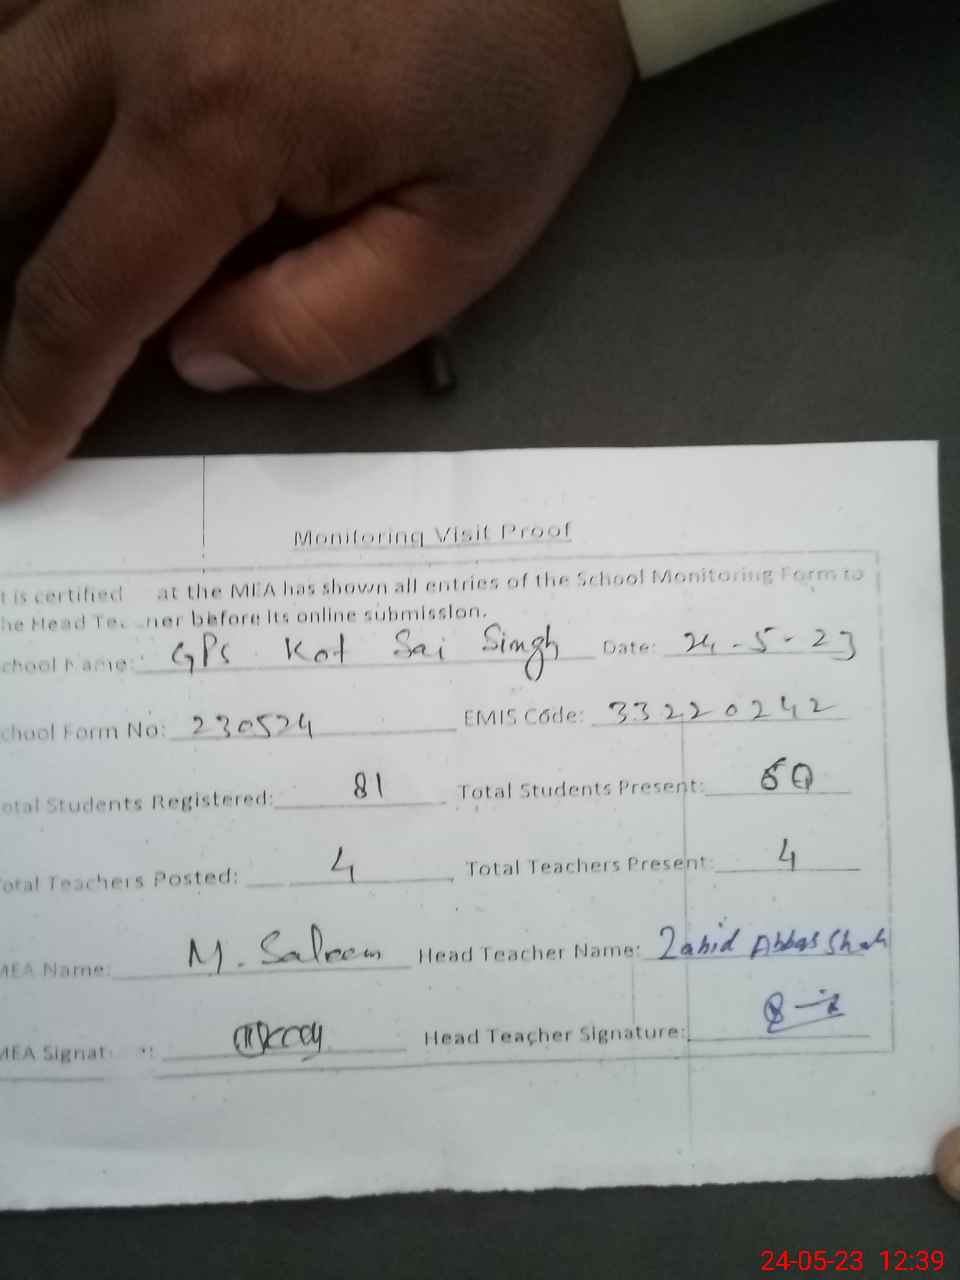 Monitoring Visit Proof
t is certified at the MEA has shown all entries of the School Monitoring Form to
he Head Te ner before its online submission.
chool Name: GPS Kot Sai Singh Date: 24-5-23
chool Form No: 230524 EMIS Code: 33220242
otal Students Registered: 81 Total Students Present:
otal Teachers Posted: 4 Total Teachers Present: 4
MEA Name: M. Saleem Head Teacher Name: Zahid Abbas Shah
MEA Signat : Head Teacher Signature:
24-05-23 12:39